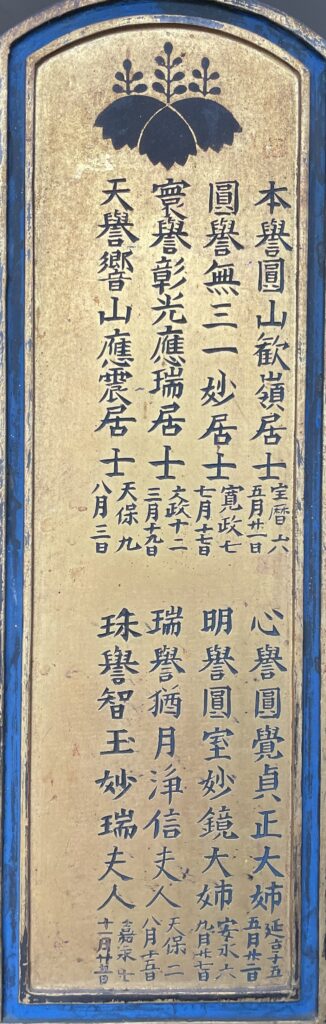 本譽圓山歓嶺居士
宝暦六
五月廿一日
圓譽無三一妙居士
寛政七
七月十七日
寰譽彰光應瑞居士
文政十二
三月十九日
天譽響山應震居士
天保九
八月三日
心譽圓覺貞正大姉
延享五
明譽圓室妙鏡大姉
安永六
瑞譽猶月浄信夫人
天保二
八月十五日
珠譽智玉妙瑞夫人
嘉永七
十一月廿五日